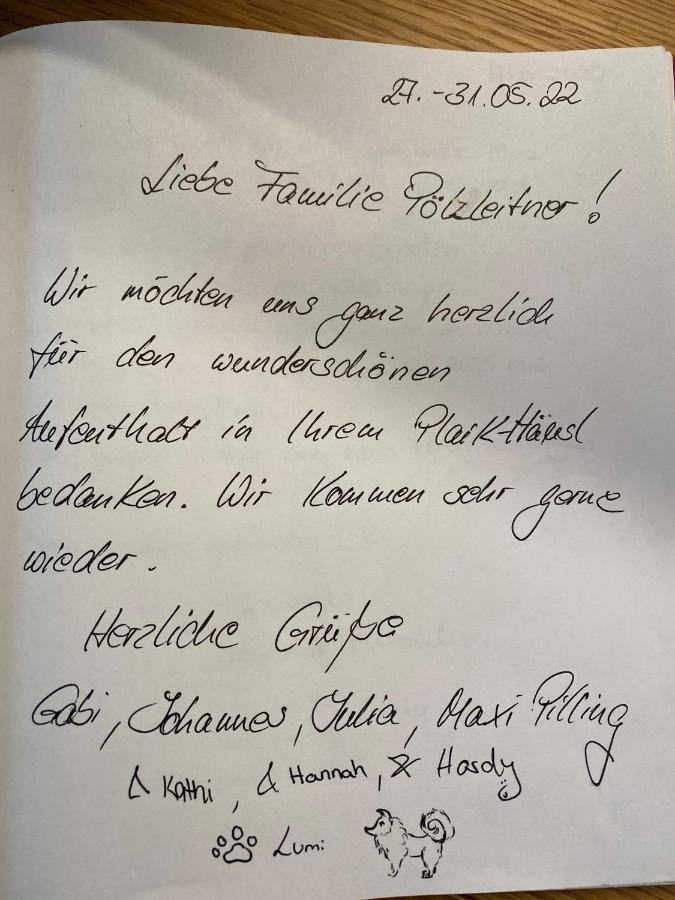 27.-31.05.22
Liebe Familie Pölzleitner!
Wir möchten uns ganz herzlich
für den wunderschönen
Aufenthalt in Ihrem Plaik-Häusl
bedanken. Wir kommen sehr gerne
wieder.
Herzliche Grüße
Gabi, Johannes, Julia, Maxi Pilling
& Kathi, & Hannah, & Hardy
Lumi